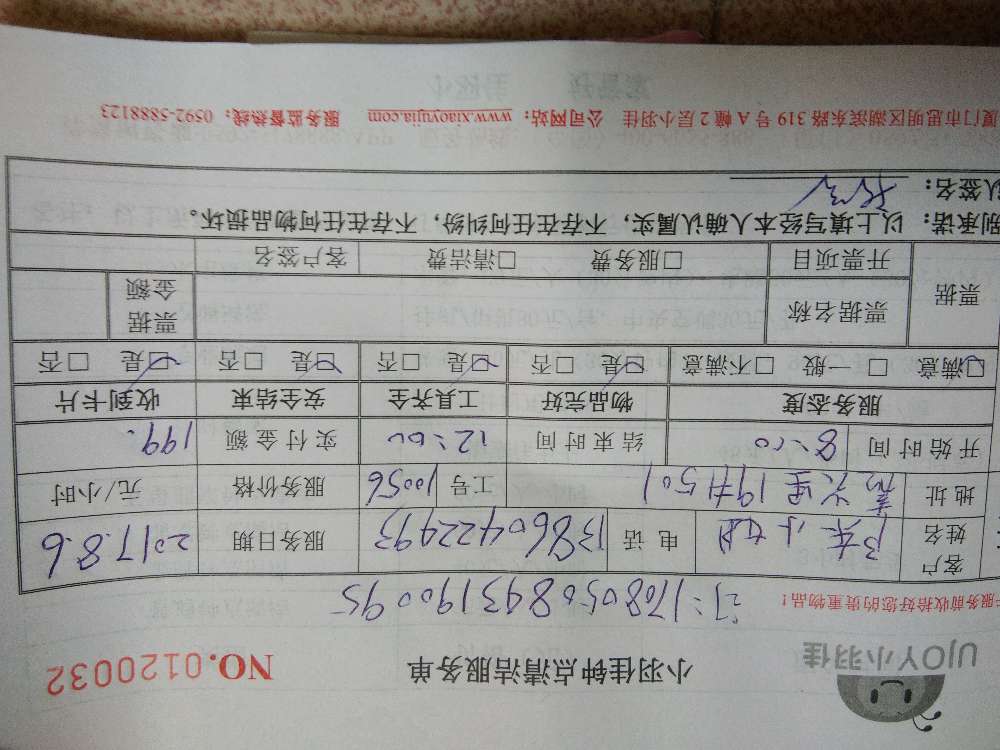 UJOY小羽佳
小羽佳钟点清洁服务单
NO.0120032
服务前收拾好您的贵重物品！
订：17080508431900 95
客户姓名 陈小姐 电话 13860422493 服务日期 2017.8.6
地址 里19#1501 工号 10056 服务价格 元/小时
开始时间 8:00 结束时间 12:00 实付金额 199.
服务态度 物品完好 工具齐全 安全结束 收到卡片
☑满意 □一般 □不满意 ☑是 □否 ☑是 □否 ☑是 □否 ☑是 □否
票据 票据名称 票据金额
开票项目 □服务费 □清洁费 客户签名
别承诺：以上填写经本人确认属实，不存在任何纠纷，不存在任何物品损坏。
认签名：
厦门市思明区湖滨东路319号A幢2层小羽佳 公司网站：www.xiaoyujia.com 服务监督热线：0592-5888123